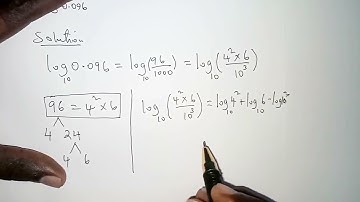 log0.096
Solution
log₁₀0.096 = log₁₀(96/1000) = log₁₀(4²×6/10³)
96 = 4²×6
4 24
4 6
log₁₀(4²×6/10³) = log₁₀4² + log₁₀6 - log